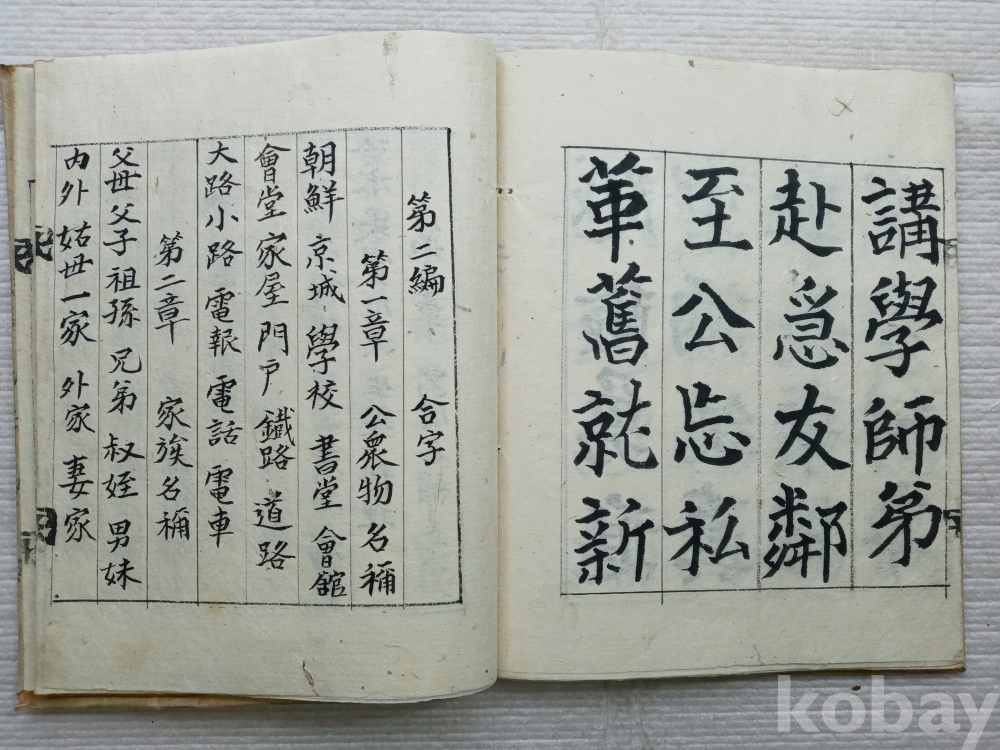 講學師弟
赴急友鄰
至公忘私
革舊就新
第二編 合字
第一章 公衆物名稱
朝鮮 京城 學校 書堂 會館
會堂 家屋 門戶 鐵路 道路
大路小路 電報 電話 電車
第二章 家族名稱
父母父子祖孫 兄弟 叔姪 男妹
內外 姑母一家 外家 妻家
kobay